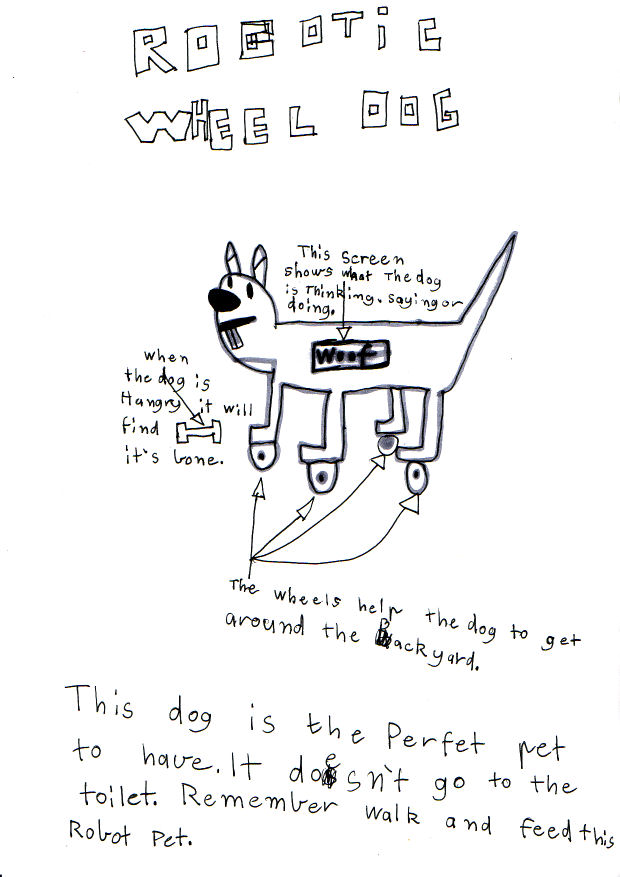 ROBOTIC
WHEEL DOG
This Screen
shows what The dog
is Thinking. saying or
doing.
Woof
when
the dog is
Hangry it will
find
it's bone.
The wheels help the dog to get
around the Backyard.
This dog is the Perfet pet
to have. It doesn't go to the
toilet. Remember walk and feed this
Robot Pet.